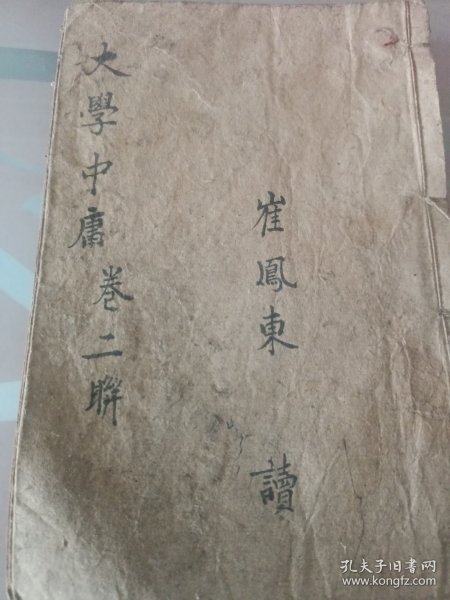 崔鳳東 讀
大學中庸 卷二聨
孔夫子旧书网
www.kongfz.com